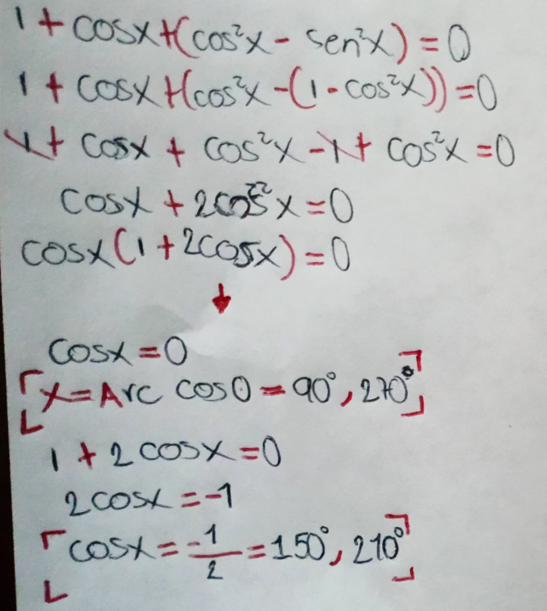 1 + cosx+(cos²x - sen²x) = 0
1 + cosx+(cos²x-(1-cos²x))=0
1+ cosx + cos²x -1+ cos²x =0
cosx + 2cos²x=0
cosx(1+2cosx)=0
↓
cosx=0
[x=Arc cos0=90°,270°]
1+2cosx=0
2cosx=-1
[cosx=-1/2=150°,210°]